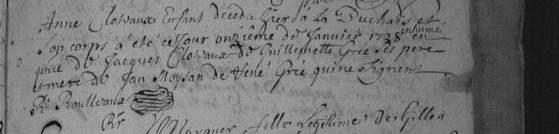 Anne Clovaux Enfant deceda hier a la Duchais et
son corps a été ce jour onzième de Janvier 1738 inhumé en
pnce de Jacques Clovaux de Guillemette Grée ses pere
et mere de Jan Moysan de René Grée qui ne signent
R. Roulleaux
Rr Marquer fille Legitime de Gilles